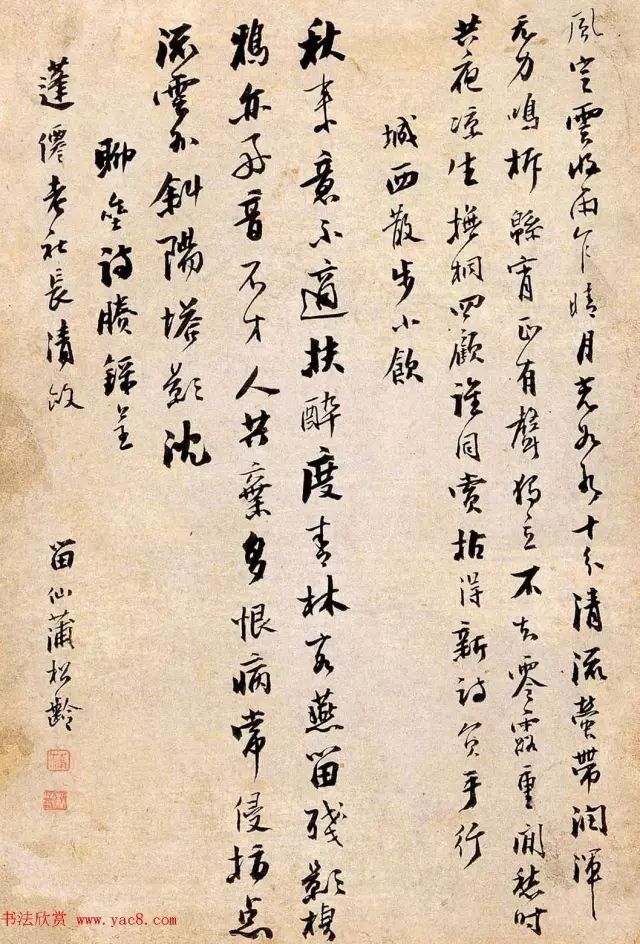 風定雲收雨乍晴月光如水十分清流螢帶潤渾
无力鳴柝縣宵正有聲獨立不知零露重閒愁时
共夜涼生撫桐四顧誰同賞拈得新詩負手行
城西散步小飲
秋来意不適扶醉度青林客燕留殘影棲
鴉亦好音不才人共棄多恨病常侵指点
流雲外斜陽塔影沈
聊齋詩賸錄呈
蓬僊老社長清政
留仙蒲松齡
书法欣赏 www.yac8.com